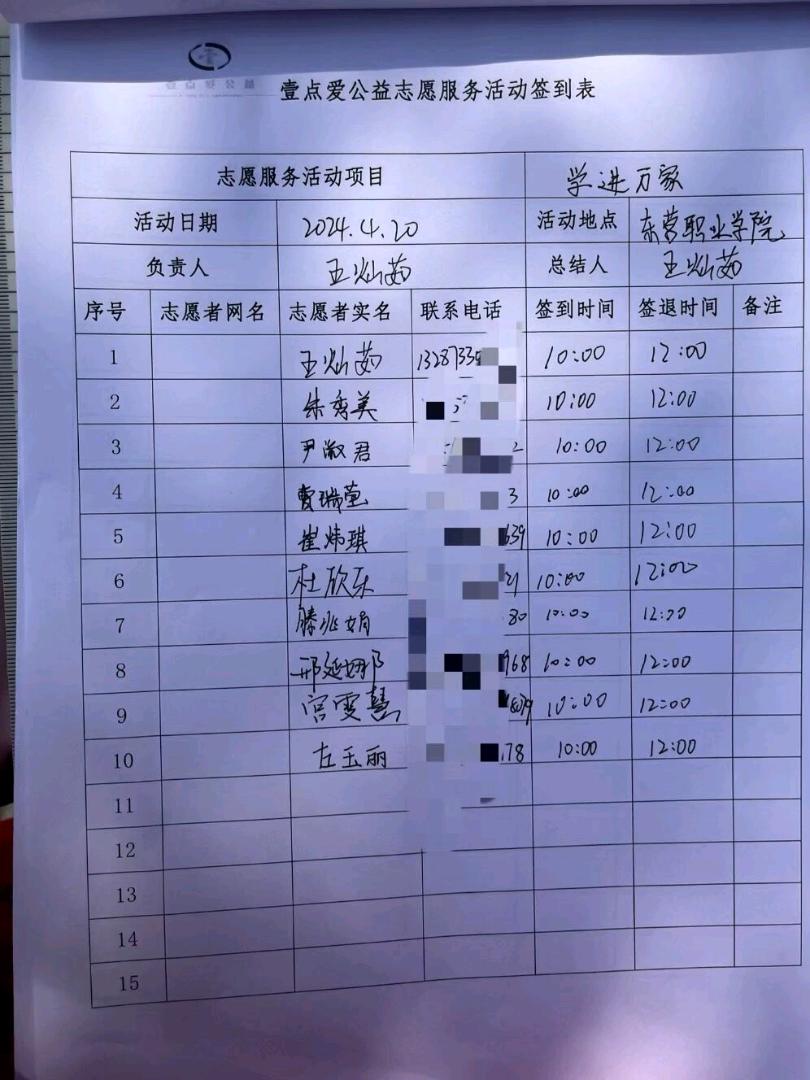 壹点爱公益
壹点爱公益志愿服务活动签到表
志愿服务活动项目 学进万家
活动日期 2024.4.20 活动地点 东营职业学院
负责人 王灿茹 总结人 王灿茹
序号 志愿者网名 志愿者实名 联系电话 签到时间 签退时间 备注
1 王灿茹 1328733 10:00 12:00
2 朱秀美 10:00 12:00
3 尹淑君 2 10:00 12:00
4 贾瑞莹 3 10:00 12:00
5 崔炜琪 639 10:00 12:00
6 杜欣乐 21 10:00 12:00
7 滕兆娟 80 10:00 12:00
8 邢延娜 968 10:00 12:00
9 宫雯慧 10:00 12:00
10 左玉丽 78 10:00 12:00
11
12
13
14
15